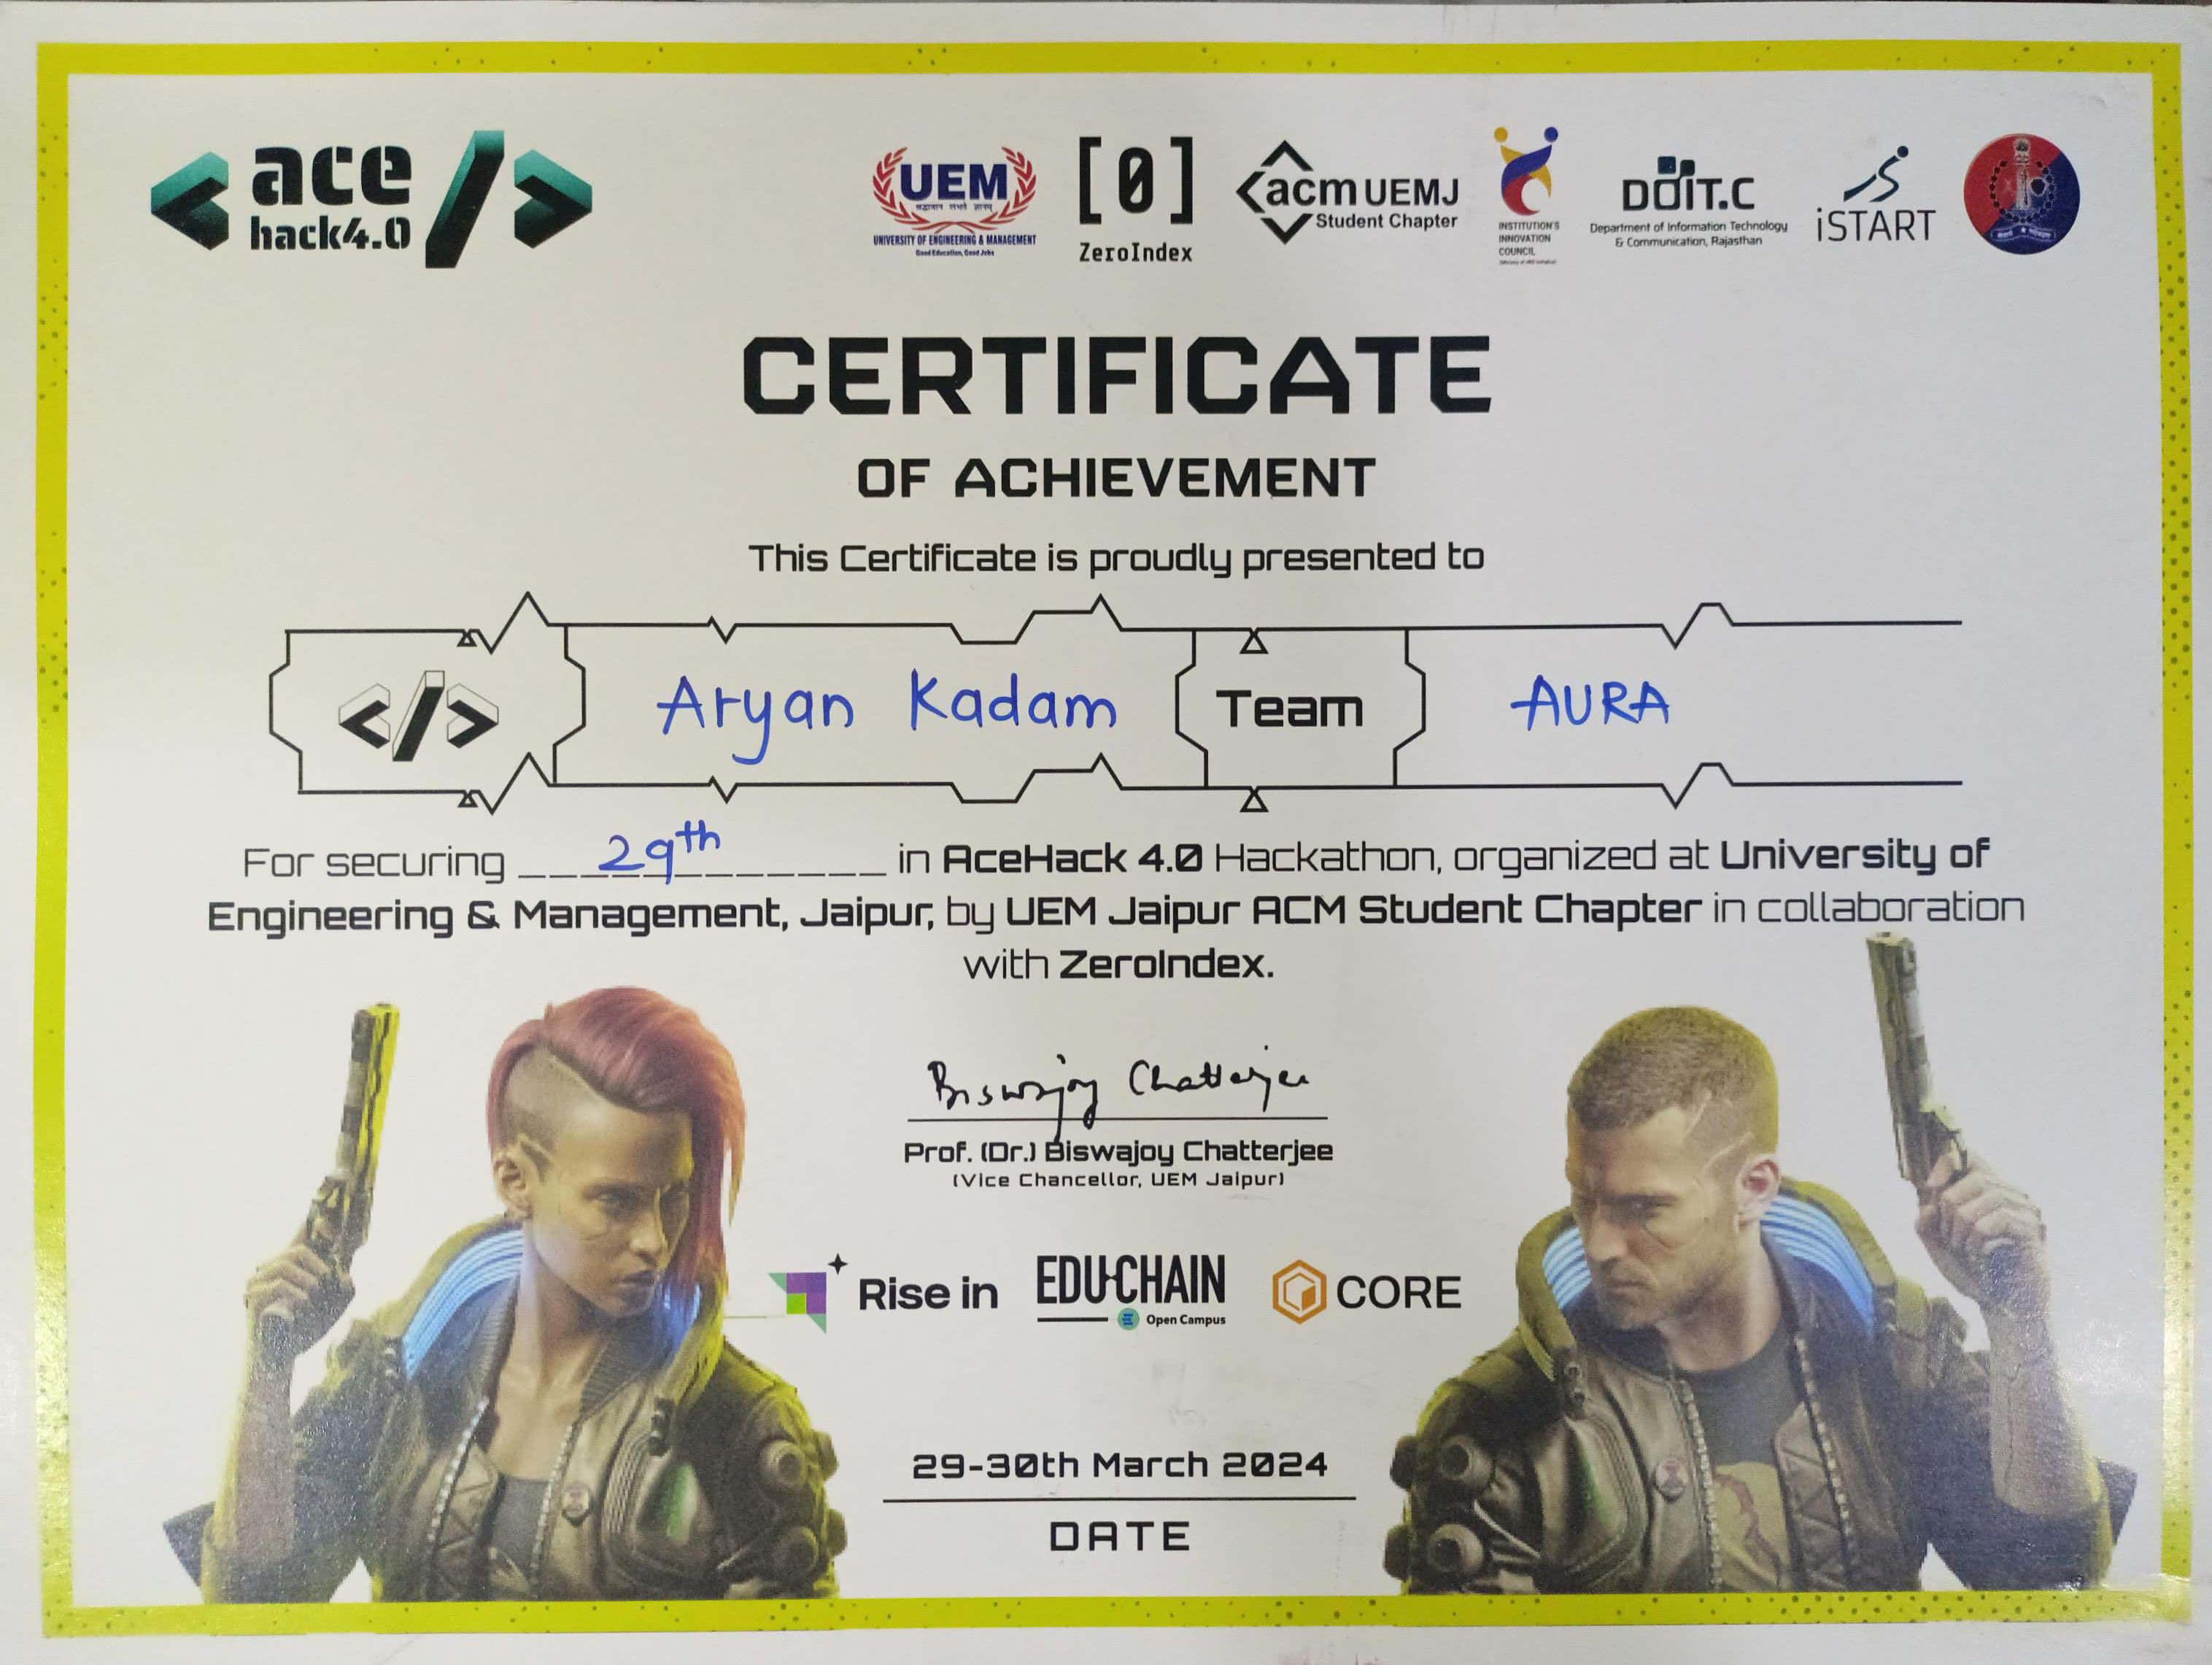 ace
hack4.0
UEM
UNIVERSITY OF ENGINEERING & MANAGEMENT
Good Education, Good Jobs
[0]
ZeroIndex
acm UEMJ
Student Chapter
INSTITUTION'S
INNOVATION
COUNCIL
DOIT.C
Department of Information Technology
& Communication, Rajasthan
iSTART
CERTIFICATE
OF ACHIEVEMENT
This Certificate is proudly presented to
</> Aryan Kadam Team AURA
For securing 29th in AceHack 4.0 Hackathon, organized at University of
Engineering & Management, Jaipur, by UEM Jaipur ACM Student Chapter in collaboration
with ZeroIndex.
Biswajoy Chatterjee
Prof. (Dr.) Biswajoy Chatterjee
(Vice Chancellor, UEM Jaipur)
Rise in
EDU-CHAIN
Open Campus
CORE
29-30th March 2024
DATE